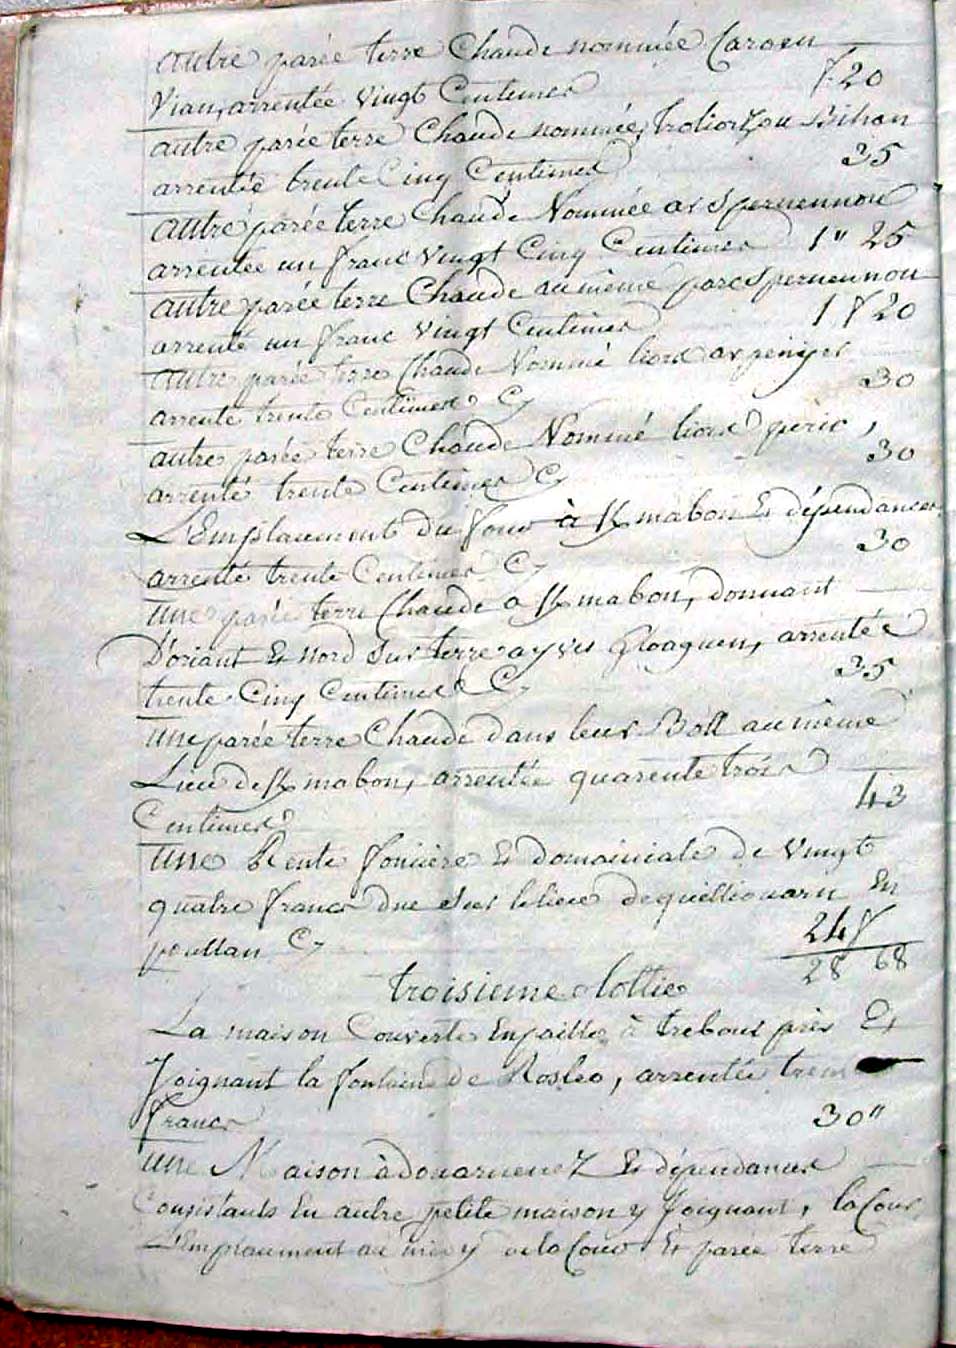 autre parée terre Chaude nommée Caroen
Vian, arrentée vingt Centimes f 20
autre parée terre Chaude nommée, trolior Bihan
arrentée trente Cinq Centimes 35
autre parée terre Chaude Nommée ar Spernennou
arrentée un franc vingt Cinq Centimes 1" 25
autre parée terre Chaude au même parc Spernennou
arrenté un franc vingt Centimes 1 f 20
autre parée terre Chaude Nommé liors ar
arrenté trente Centimes Cy 30
autre parée terre Chaude Nommé liors péric,
arrenté trente Centimes Cy 30
L'Emplacement du four à Kmabon Et dépendances
arrenté trente Centimes Cy 30
une parée terre Chaude a Kmabon, donnant
D'oriant Et nord Sur terre a yves Gloaguen, arrentée
trente Cinq Centimes Cy 35
une parée terre Chaude dans leur Boll au même
Lieu de Kmabon, arrentée quarente trois
Centimes 43
une Rente fonciere Et domainiale de Vingt
quatre francs due sur le lieu de quillioüarn En
poullan Cy 24 f
28 68
troisieme lottie
La maison Couverte En paille à treboul près Et
Joignant la fontaine de Rosleo, arrentée trente
francs 30"
une Maison à douarnenez Et dépendances
Consistants En autre petite maison y Joignant, la Cour
L'Emplacement au de la Cour Et parée terre